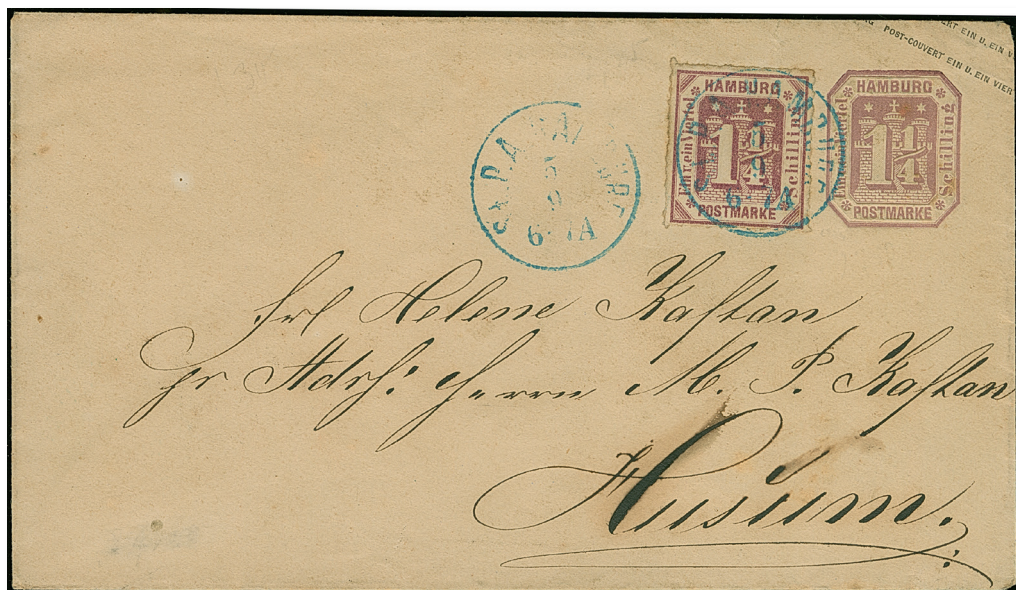 POST-COUVERT EIN U. EIN VIER
ERT EIN U. EIN V
HAMBURG
Ein ein Viertel
1 1/4
Schilling
POSTMARKE
HAMBURG
Ein ein Viertel
1 1/4
Schilling
POSTMARKE
5
9
6-7A
ST.P.A. HAMBURG
5
9
6-7A
Frl Helene Kaftan
pr Adrs: Herrn M. P. Kaftan
Husum.